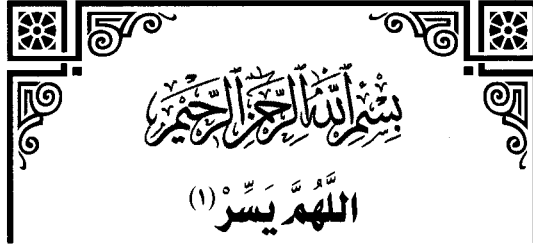 بِسْمِ اللَّهِ الرَّحْمَنِ الرَّحِيمِ
اللَّهُمَّ يَسِّرْ (١)